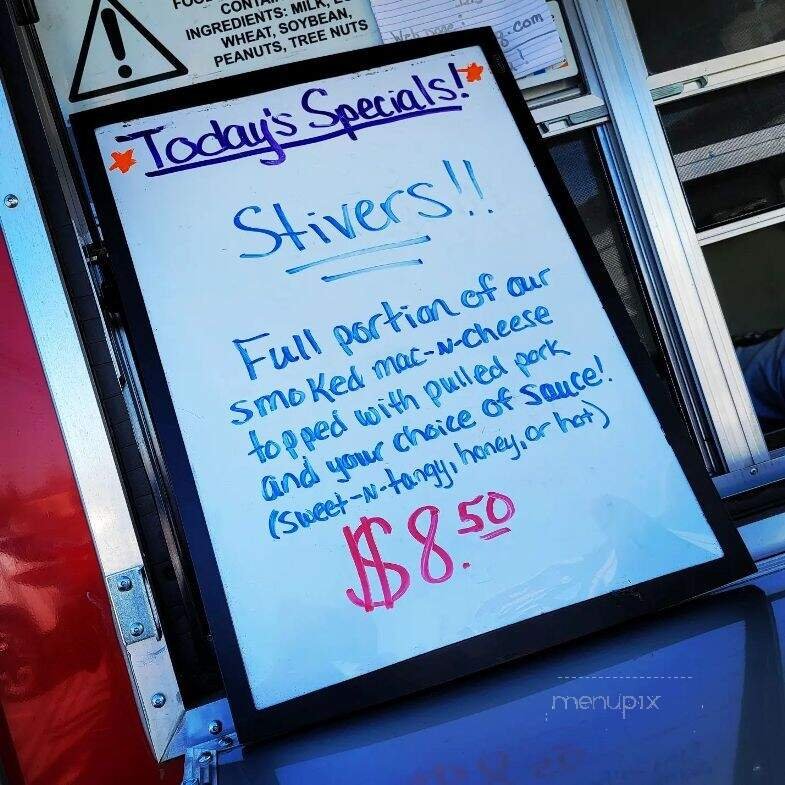 CONTA
INGREDIENTS: MILK,
WHEAT, SOYBEAN,
PEANUTS, TREE NUTS
.com
Today's Specials!
Stivers!!
Full portion of our
smoked mac-N-cheese
topped with pulled pork
and your choice of sauce!
(sweet-N-tangy, honey, or hot)
$8.50
menupix